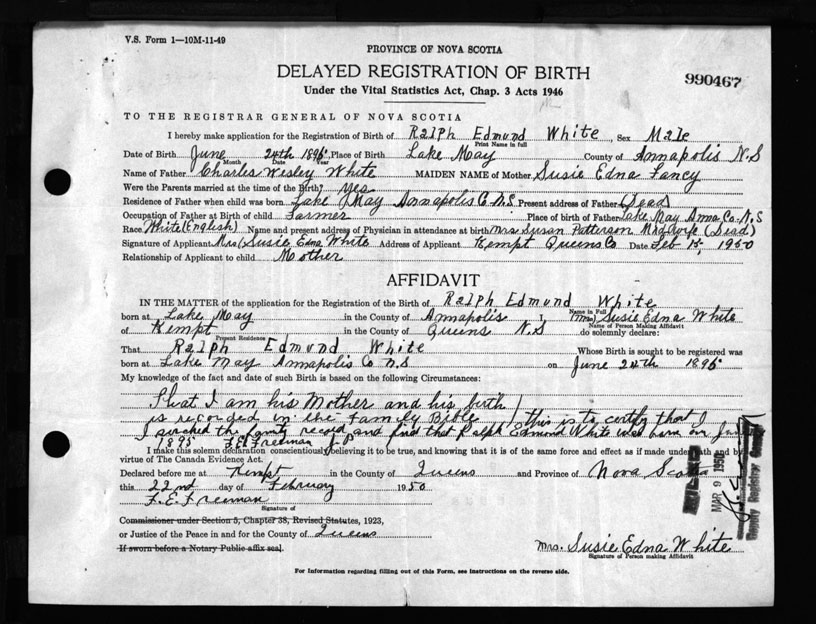 V.S. Form 1—10M-11-49
PROVINCE OF NOVA SCOTIA
DELAYED REGISTRATION OF BIRTH
990467
Under the Vital Statistics Act, Chap. 3 Acts 1946
TO THE REGISTRAR GENERAL OF NOVA SCOTIA
I hereby make application for the Registration of Birth of Ralph Edmund White, Sex Male
Print Name in full
Date of Birth June 24th 1895, Place of Birth Lake May County of Annapolis N.S
Month Date Year
Name of Father Charles Wesley White MAIDEN NAME of Mother Susie Edna Fancy
Were the Parents married at the time of the Birth? Yes
Residence of Father when child was born Lake May Annapolis Co N.S Present address of Father (Dead)
Occupation of Father at Birth of child Farmer Place of birth of Father Lake May Anna Co. N.S
Race White (English) Name and present address of Physician in attendance at birth Mrs Susan Patterson Midwife (Dead)
Signature of Applicant Mrs Susie Edna White Address of Applicant Kempt Queens Co Date Feb 15, 1950
Relationship of Applicant to child Mother
AFFIDAVIT
IN THE MATTER of the application for the Registration of the Birth of Ralph Edmund White
Name in Full
born at Lake May in the County of Annapolis, (Mrs) Susie Edna White
Name of Person Making Affidavit
of Kempt in the County of Queens N.S do solemnly declare:
Present Residence
That Ralph Edmund White Whose Birth is sought to be registered was
born at Lake May Annapolis Co N.S on June 24th 1895
My knowledge of the fact and date of such Birth is based on the following Circumstances:
That I am his Mother and his birth
is recorded in the Family Bible / this is to certify that I
the family record and find that Ralph Edmund White was born on June
1895 F.E. Freeman J.P
I make this solemn declaration conscientiously believing it to be true, and knowing that it is of the same force and effect as if made under oath and by
virtue of The Canada Evidence Act.
Declared before me at Kempt in the County of Queens and Province of Nova Scotia
this 22nd day of February 1950
F.E. Freeman
Signature of
Commissioner under Section 5, Chapter 38, Revised Statutes, 1923,
or Justice of the Peace in and for the County of Queens
If sworn before a Notary Public affix seal.
MAR 9 1950
Mrs. Susie Edna White
Signature of Person making Affidavit
For Information regarding filling out of this Form, see instructions on the reverse side.